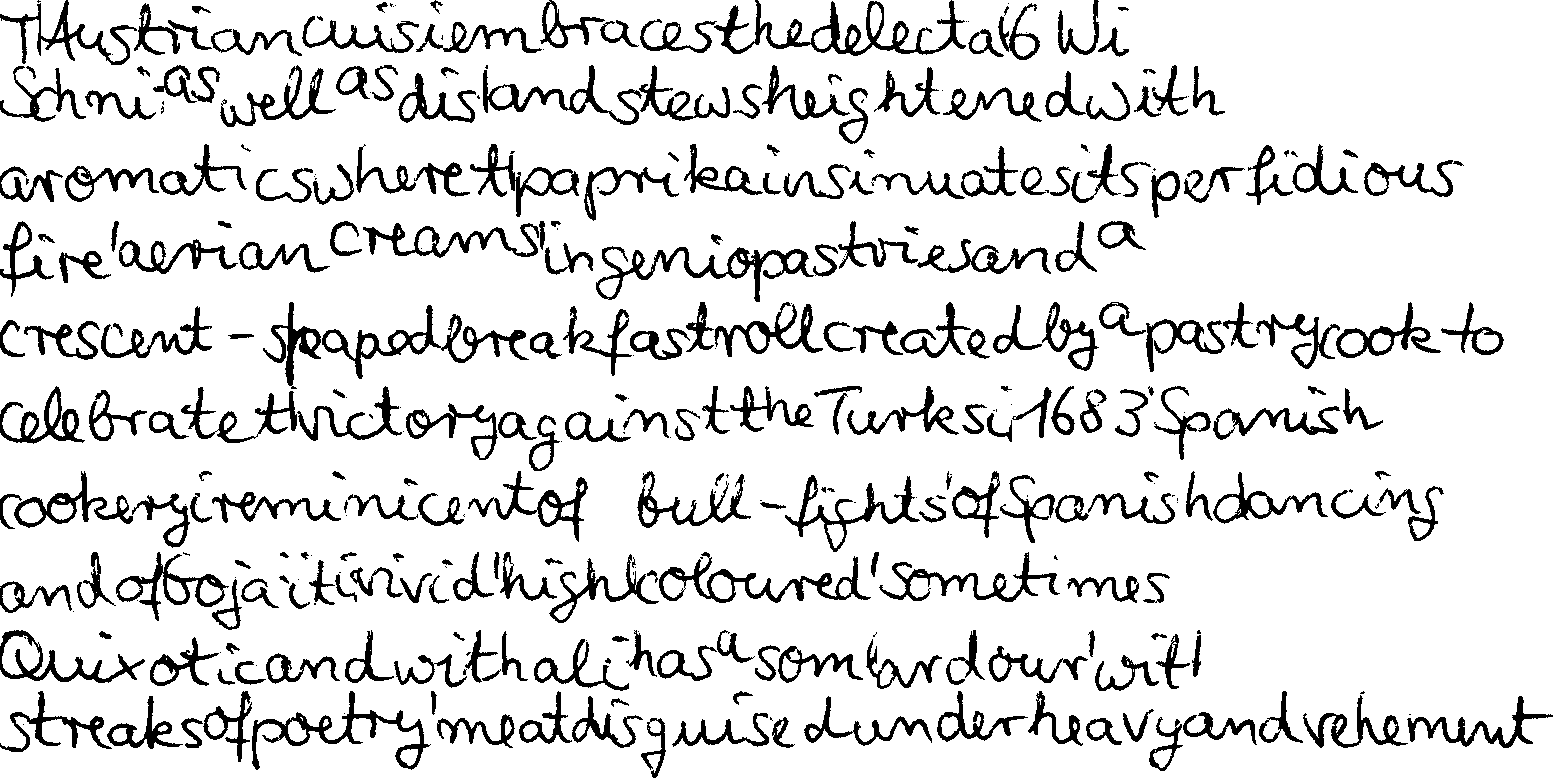 The Austrian cuisi embraces the delecta Wi
Schni as well as dis and stews heightened with
aromatics where th paprika insinuates its perfidious
fire' aerian creams' ingenio pastries and a
crescent-shaped breakfast roll created by a pastrycook to
celebrate th victory against the Turks i 1683' Spanish
cookery i reminicent of bull-fights' of Spanish dancing
and of Goja' it i vivid' high coloured' sometimes
Quixotic and with al i has a som ardour' with
streaks of poetry' meat disguised under heavy and vehement